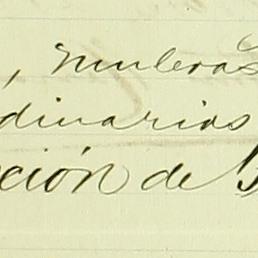 , muleras
dinarios
ción de